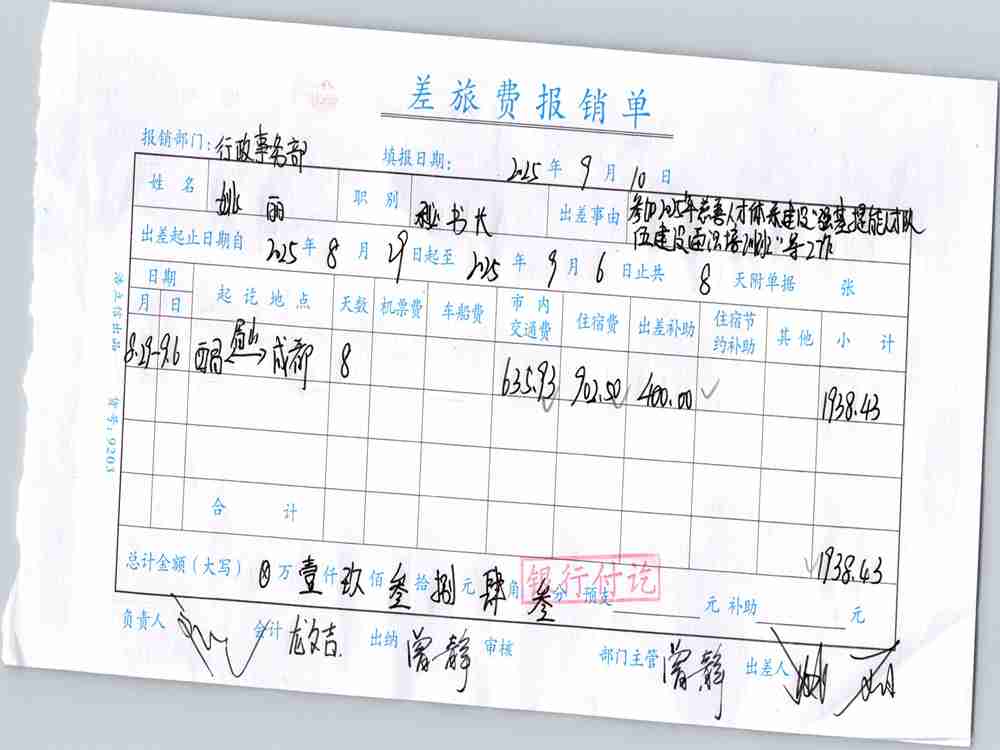 差旅费报销单
报销部门：行政事务部 填报日期： 2025 年 9 月 10 日
姓名 姚丽 职别 秘书长 出差事由 参加2025年慈善人才体系建设"强基提能人才队
伍建设通识培训班"等工作
出差起止日期自 2025 年 8 月 29 日起至 2025 年 9 月 6 日止共 8 天附单据 张
日期 起讫地点 天数 机票费 车船费 市内交通费 住宿费 出差补助 住宿节约补助 其他 小计
月 日
8.29-9.6 成都 8 635.93 902.50 400.00 1938.43
合计 1938.43
总计金额（大写） 万 壹 仟 玖 佰 叁 拾 捌 元 肆 角 叁 分 预支 元 补助 元
银行付讫
负责人 会计 龙文吉 出纳 曾静 审核 部门主管 曾静 出差人 姚丽
货号：9203